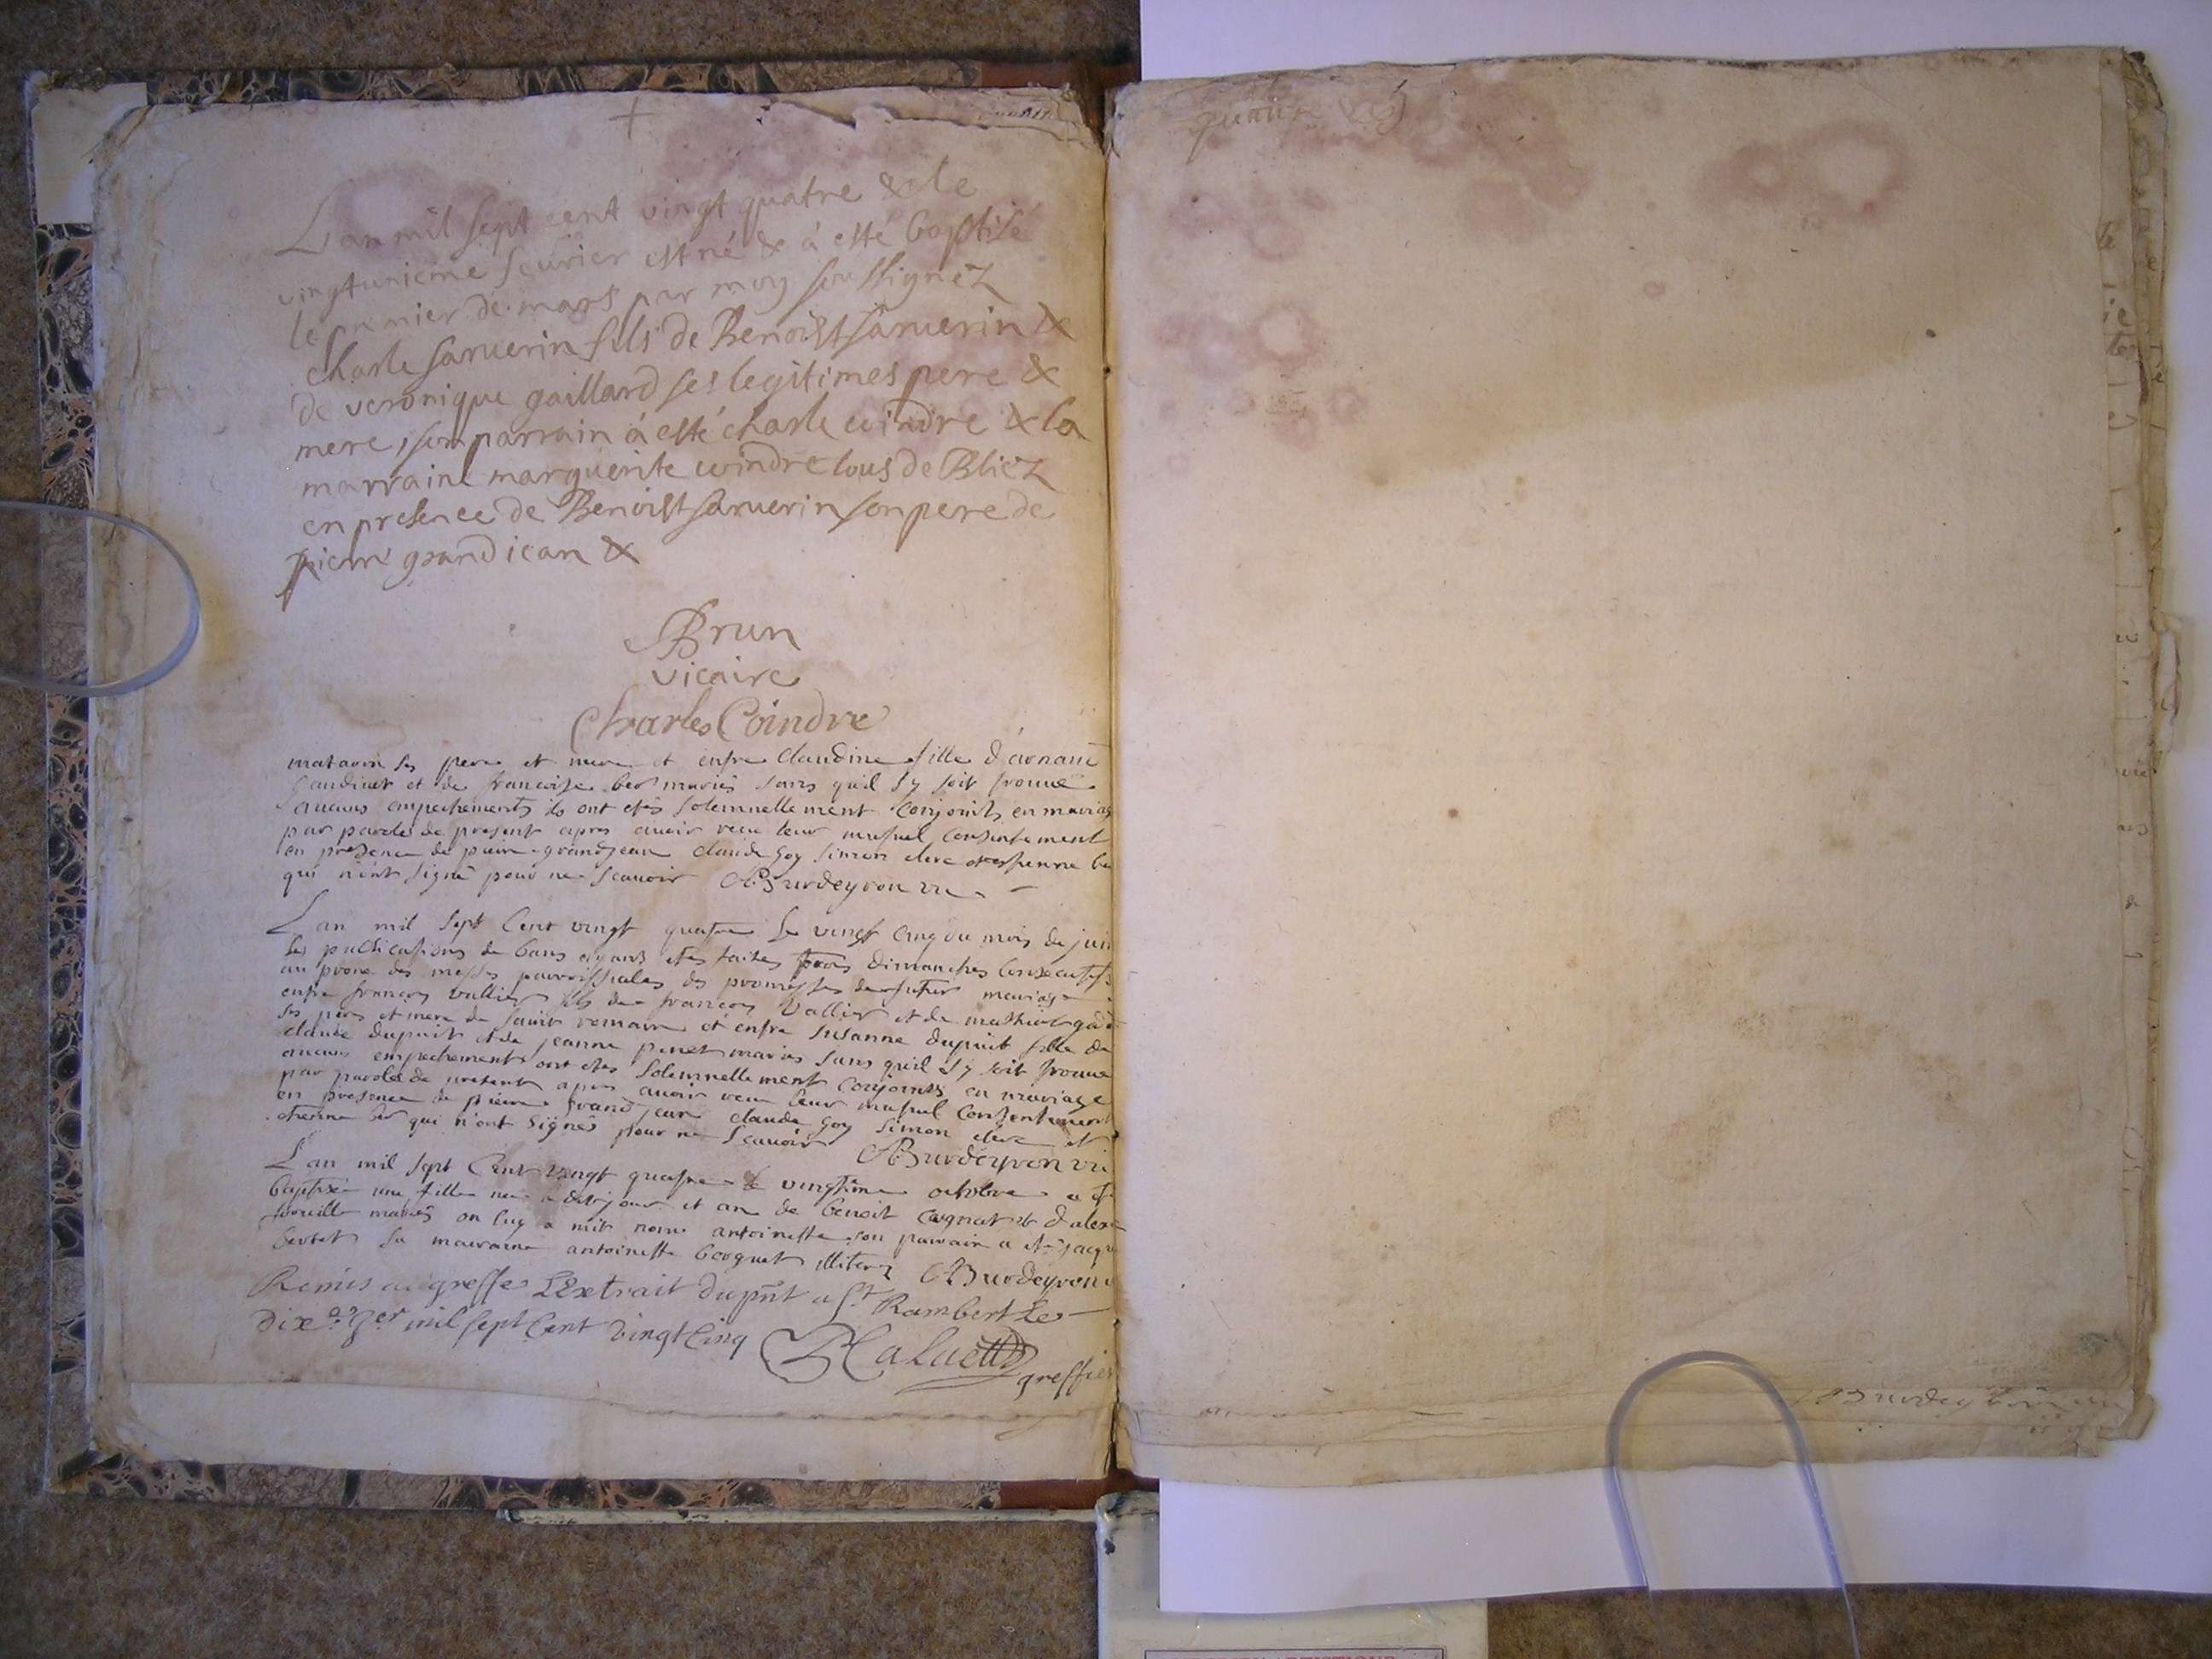 L'an mil sept cent vingt quatre & le
vingtunieme feurier est né & à esté baptisé
le premier de mars par moy soussignez
charle saruerin fils de Benoist saruerin &
de veronique gaillard ses legitimes pere &
mere, son parrain à esté charle coindre & la
marraine marguerite coindre tous de Bliez
en presence de Benoist saruerin son pere de
pierre grand iean &
Brun
vicaire
Charles Coindre
matavin ses pere et mere et enfre Claudine fille d'arnaud
et de francoise ber mariés sans quil sy soit trouué
aucuns empechements ils ont etés solemnellement conjoints en mariag
par parole de present apres auoir receu leur mutuel consentement
en presence de pierre grandjean claude goy simon clere et estienne be
qui n'ont signé pour ne scauoir Burdeyron vic
L'an mil sept Cent vingt quatre le vingt cinq du mois de juin
les publications de bans ayans etes faites trois dimanches consecutifs
au prone des messes parroissiales des promesses de futur mariage
entre francois vallier fils de francois Vallier et de
ses pere et mere de saint romain et entre Susanne dupuit fille de
claude dupuit et de jeanne mariés sans quil sy soit trouué
aucuns empechements ont etes solemnellement conjoints en mariage
par parole de present apres auoir receu leur mutuel Consentement
en presence de pierre grand jean claude goy simon clere et
etienne ber qui n'ont signés pour ne scauoir Burdeyron vic
L'an mil sept Cent vingt quatre le vingtieme octobre a
baptisé une fille nee dit jour et an de benoit et
mariés on luy a mit nom antoinette son parrain a eté jacqu
sa marraine antoinette Burdeyron
Remis au greffe L'Extrait du pnt a St Rambert le
Dix mil sept Cent vingt Cinq
greffier
Burdeyron